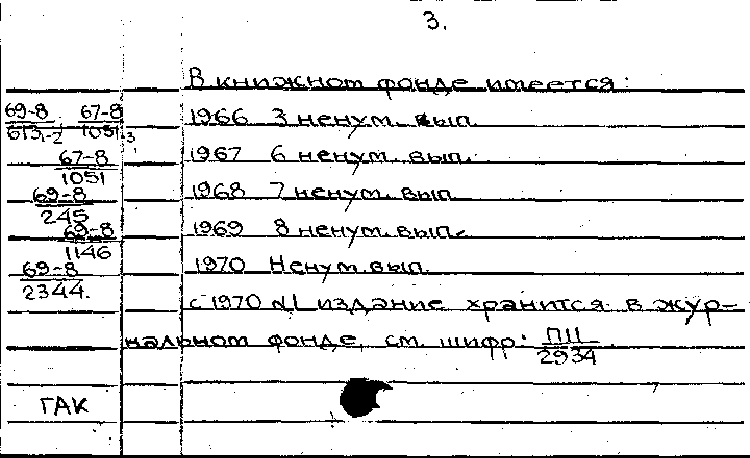 3.
В книжном фонде имеется:
69-8/613 1-2; 67-8/1051 1-3 1966 3 ненум. вып.
67-8/1051 1967 6 ненум. вып.
69-8/245 1968 7 ненум. вып.
69-8/1146 1969 8 ненум. вып.
69-8/2344. 1970 Ненум. вып.
с 1970 №1 издание хранится в жур-
нальном фонде, см. шифр: П11/2934.
ГАК